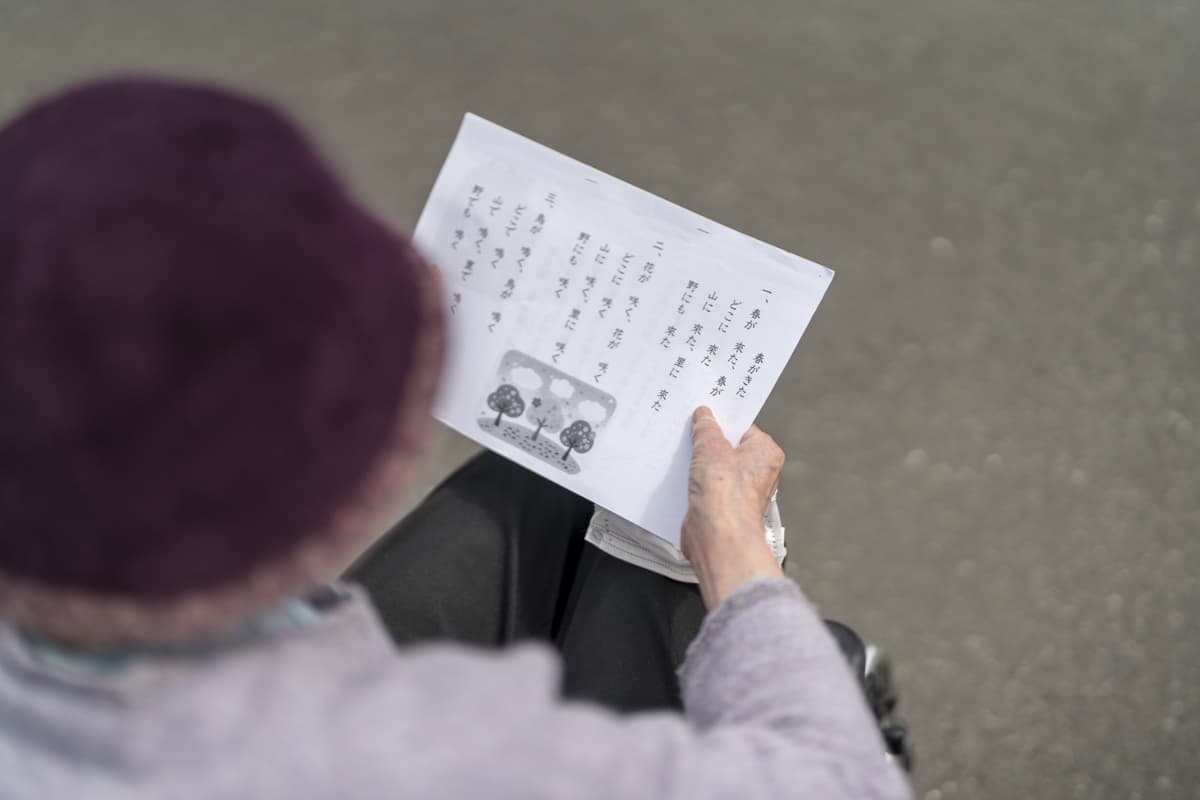 春がきた
一、春が 来た、春が
どこに 来た
山に 来た、里に 来た
野にも 来た
二、花が 咲く、花が 咲く
どこに 咲く
山に 咲く、里に 咲く
野にも 咲く
三、鳥が 鳴く、鳥が 鳴く
どこで 鳴く
山で 鳴く、里で 鳴く
野でも 鳴く